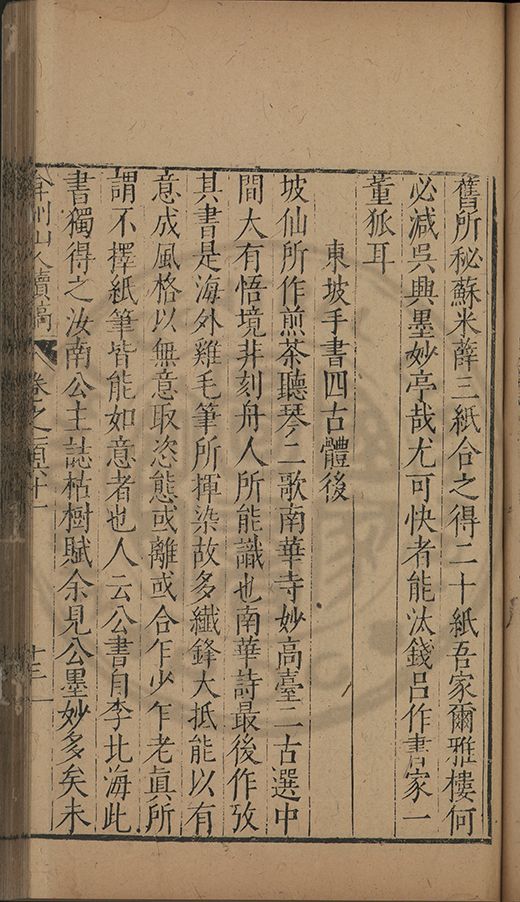 舊所秘蘇米薛三紙合之得二十紙吾家爾雅樓何
必減吳興墨妙亭哉尤可快者能汰錢呂作書家一
董狐耳
東坡手書四古體後
坡仙所作煎茶聽琴二歌南華寺妙高臺二古選中
間大有悟境非刻舟人所能識也南華詩最後作攷
其書是海外雞毛筆所揮染故多纖鋒大抵能以有
意成風格以無意取恣態或離或合乍少乍老真所
謂不擇紙筆皆能如意者也人云公書自李北海此
書獨得之汝南公主誌枯樹賦余見公墨妙多矣未
弇州山人續稿 卷之一百六十一 十三